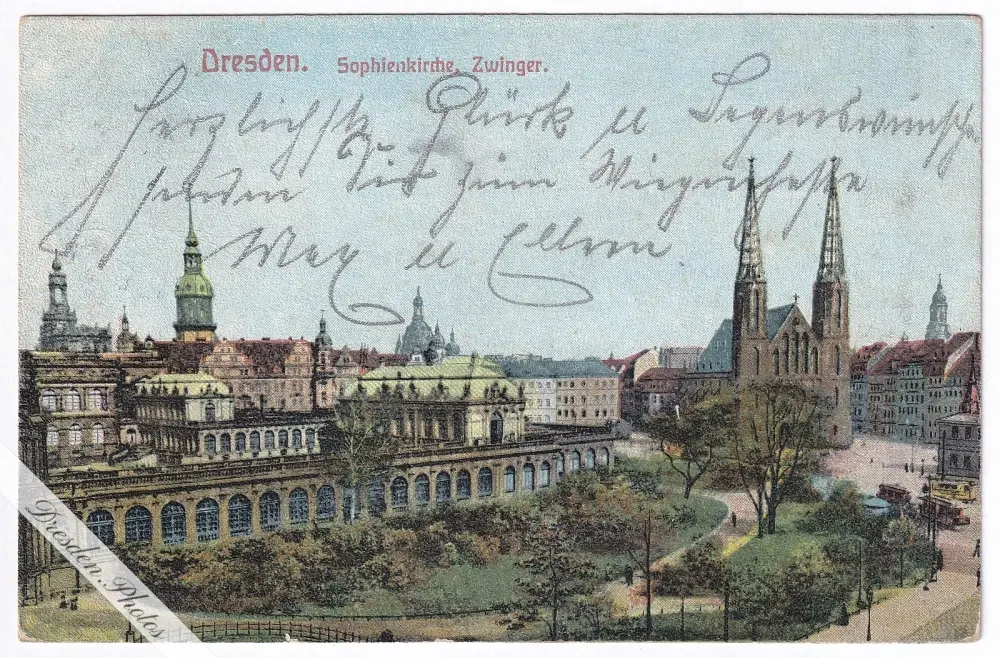 Dresden. Sophienkirche, Zwinger.
Herzlichste Glück u Segenswünsche
senden Dir zum Wiegenfeste
Max u Ellren
Dresden.Photos